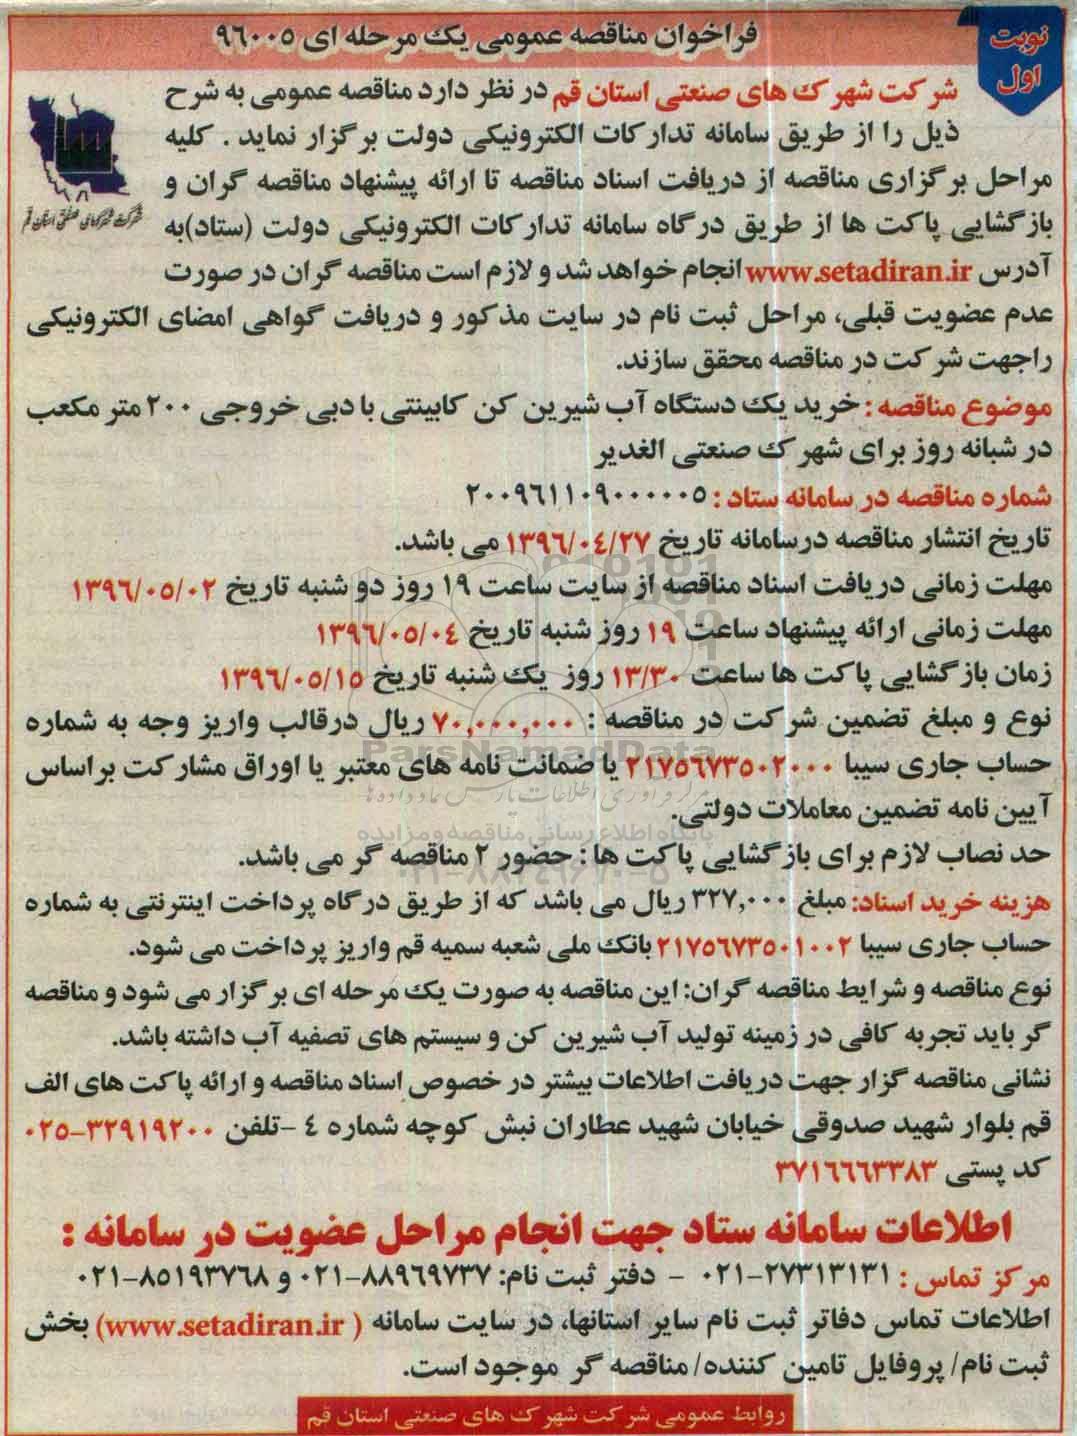 نوبت
اول
فراخوان مناقصه عمومی یک مرحله ای ۹۶۰۰۵
شرکت شهرک های صنعتی استان قم
شرکت شهرک های صنعتی استان قم در نظر دارد مناقصه عمومی به شرح
ذیل را از طریق سامانه تدارکات الکترونیکی دولت برگزار نماید . کلیه
مراحل برگزاری مناقصه از دریافت اسناد مناقصه تا ارائه پیشنهاد مناقصه گران و
بازگشایی پاکت ها از طریق درگاه سامانه تدارکات الکترونیکی دولت (ستاد)به
آدرس www.setadiran.ir انجام خواهد شد و لازم است مناقصه گران در صورت
عدم عضویت قبلی، مراحل ثبت نام در سایت مذکور و دریافت گواهی امضای الکترونیکی
راجهت شرکت در مناقصه محقق سازند.
موضوع مناقصه : خرید یک دستگاه آب شیرین کن کابینتی با دبی خروجی ۲۰۰ متر مکعب
در شبانه روز برای شهرک صنعتی الغدیر
شماره مناقصه در سامانه ستاد : ۲۰۰۹۶۱۱۰۹۰۰۰۰۰۵
تاریخ انتشار مناقصه درسامانه تاریخ ۱۳۹۶/۰۴/۲۷ می باشد.
مهلت زمانی دریافت اسناد مناقصه از سایت ساعت ۱۹ روز دو شنبه تاریخ ۱۳۹۶/۰۵/۰۲
مهلت زمانی ارائه پیشنهاد ساعت ۱۹ روز شنبه تاریخ ۱۳۹۶/۰۵/۰۴
زمان بازگشایی پاکت ها ساعت ۱۳/۳۰ روز یک شنبه تاریخ ۱۳۹۶/۰۵/۱۵
نوع و مبلغ تضمین شرکت در مناقصه : ۷۰,۰۰۰,۰۰۰ ریال درقالب واریز وجه به شماره
حساب جاری سیبا ۲۱۷۵۶۷۳۵۰۲۰۰۰ یا ضمانت نامه های معتبر یا اوراق مشارکت براساس
آیین نامه تضمین معاملات دولتی.
حد نصاب لازم برای بازگشایی پاکت ها : حضور ۲ مناقصه گر می باشد.
هزینه خرید اسناد: مبلغ ۳۲۷,۰۰۰ ریال می باشد که از طریق درگاه پرداخت اینترنتی به شماره
حساب جاری سیبا ۲۱۷۵۶۷۳۵۰۱۰۰۲ بانک ملی شعبه سمیه قم واریز پرداخت می شود.
نوع مناقصه و شرایط مناقصه گران: این مناقصه به صورت یک مرحله ای برگزار می شود و مناقصه
گر باید تجربه کافی در زمینه تولید آب شیرین کن و سیستم های تصفیه آب داشته باشد.
نشانی مناقصه گزار جهت دریافت اطلاعات بیشتر در خصوص اسناد مناقصه و ارائه پاکت های الف
قم بلوار شهید صدوقی خیابان شهید عطاران نبش کوچه شماره ۴ -تلفن ۳۲۹۱۹۲۰۰-۰۲۵
کد پستی ۳۷۱۶۶۶۳۳۸۳
اطلاعات سامانه ستاد جهت انجام مراحل عضویت در سامانه :
مرکز تماس : ۲۷۳۱۳۱۳۱-۰۲۱ - دفتر ثبت نام: ۸۸۹۶۹۷۳۷-۰۲۱ و ۸۵۱۹۳۷۶۸-۰۲۱
اطلاعات تماس دفاتر ثبت نام سایر استانها، در سایت سامانه ( www.setadiran.ir) بخش
ثبت نام/ پروفایل تامین کننده/ مناقصه گر موجود است.
روابط عمومی شرکت شهرک های صنعتی استان قم
ParsNamadData
مرکز فرآوری اطلاعات پارس نماد داده ها
پایگاه اطلاع رسانی مناقصه و مزایده
۰۲۱-۸۸۳۴۹۶۷۰-۵